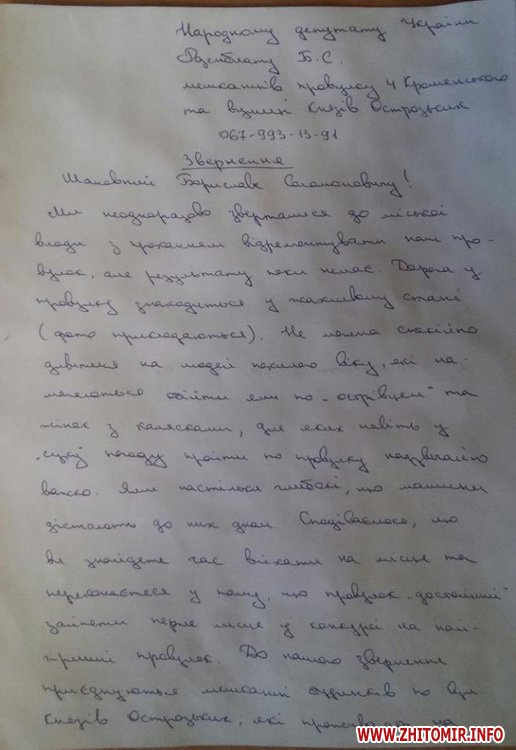 Народному депутату України
Розенблату Б.С.
мешканців провулку 4 Крошенського
та вулиці Князів Острозьких
067-993-13-91
Звернення
Шановний Бориславе Соломоновичу!
Ми неодноразово зверталися до міської
влади з проханням відремонтувати наш про-
вулок, але результату поки немає. Дорога у
провулку знаходиться у жахливому стані
(фото прикладаються). Не можна спокійно
дивитися на людей похилого віку, які на-
магаються обійти ями по „острівцям" та
жінок з колясками, для яких навіть у
суху погоду пройти по провулку надзвичайно
важко. Ями настільки глибокі, що машини
дістають до них дном. Сподіваємося, що
ви знайдете час виїхати на місце та
переконаєтеся у тому, що провулок „достойний"
зайняти перше місце у конкурсі на най-
гірший провулок. До нашого звернення
приєднуються мешканці будинків по вул.
Князів Острозьких, які проживають на
WWW.ZHITOMIR.INFO